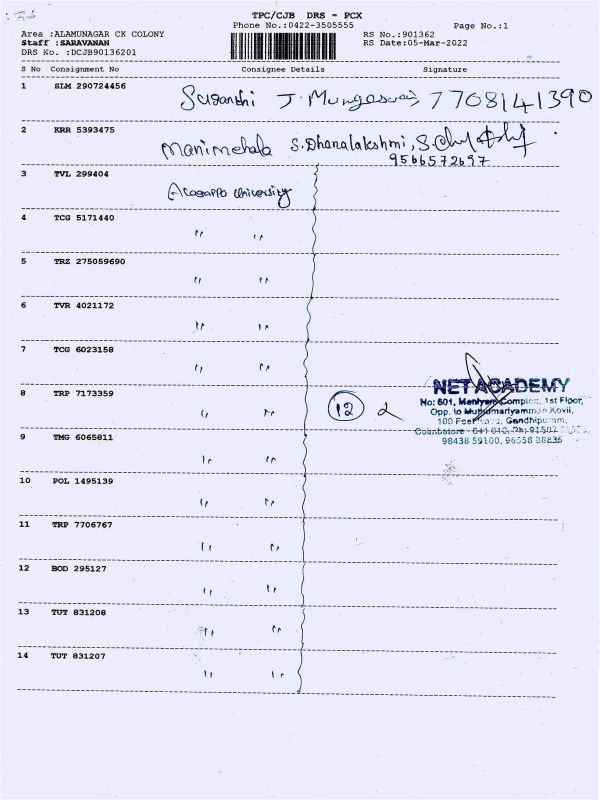 TPC/CJB DRS - PCX
Phone No.:0422-3505555 Page No.:1
Area :ALAMUNAGAR CK COLONY RS No.:901362
Staff :SARAVANAN RS Date:05-Mar-2022
DRS No. :DCJB90136201
S No Consignment No Consignee Details Signature
1 SLM 290724456
Suganthi J. 7708141390
2 KRR 5393475
Manimehala S. Dhanalakshmi,
9566572697
3 TVL 299404
University
4 TCG 5171440
" "
5 TRZ 275059690
" "
6 TVR 4021172
" "
7 TCG 6023158
" "
NET ACADEMY
8 TRP 7173359
No: 601, Maniyam Complex, 1st Floor,
" " 12
Opp. to Muthumariyamman Kovil,
100 Feet Road, Gandhipuram,
9 TMG 6065811
Coimbatore - 641 012. Ph:
98438 59100, 96558 88836
" "
10 POL 1495139
" "
11 TRP 7706767
" "
12 BOD 295127
" "
13 TUT 831208
" "
14 TUT 831207
" "